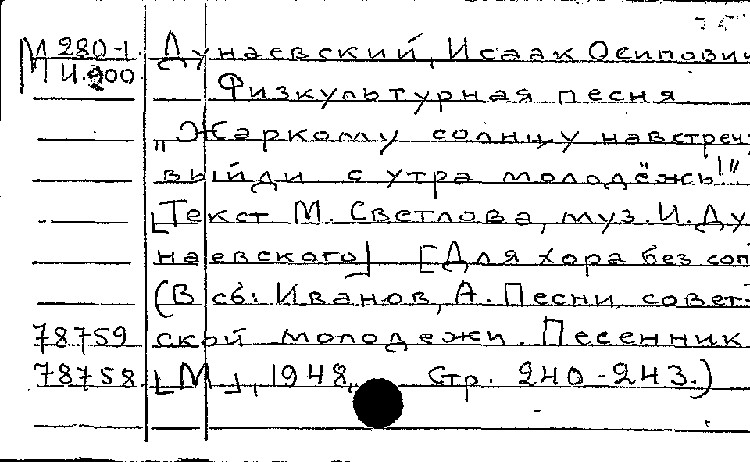 М 280-1. Дунаевский, Исаак Осипович
И.900.
Физкультурная песня
„Жаркому солнцу навстречу
выйди с утра молодёжь!"
[Текст М. Светлова, муз. И. Ду
наевского] [Для хора без соп
(В сб: Иванов, А. Песни совет-
78759 ской молодежи. Песенник
78758. [М], 1948, Стр. 240-243.)